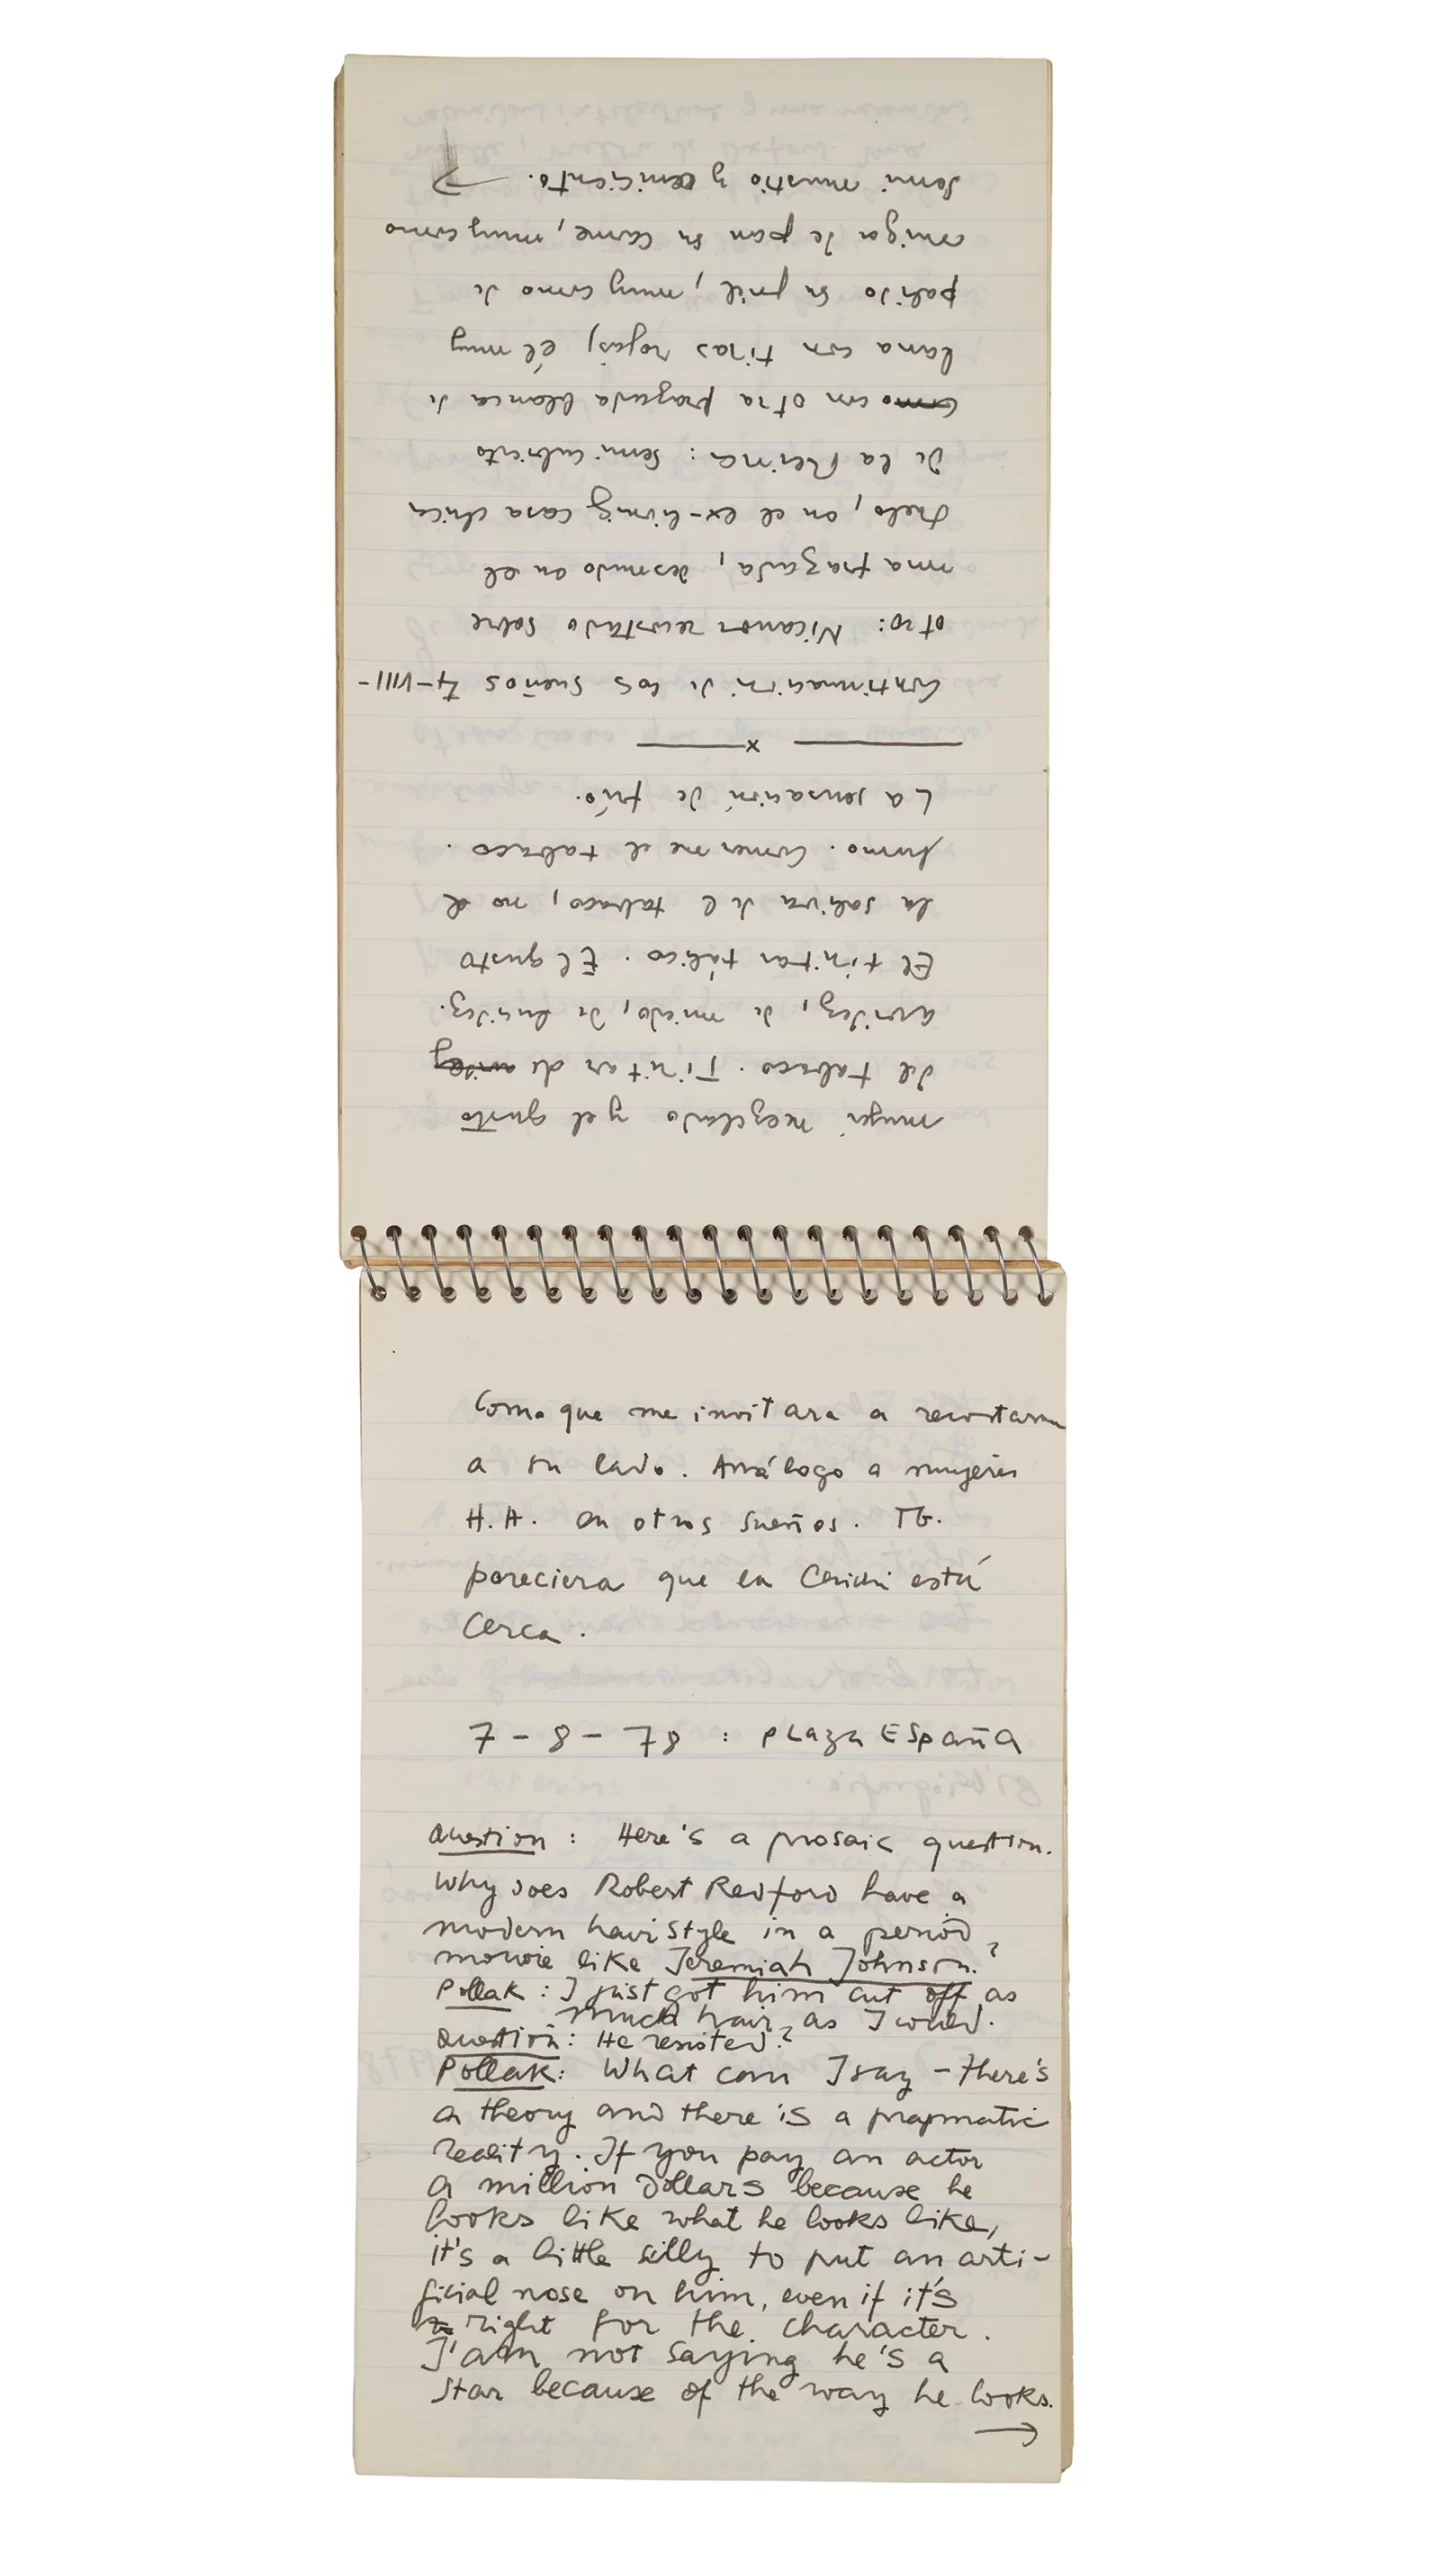 mujer mezclado y el gusto
del tabaco. Tiritar de
avidez, de miedo, de lucidez.
El tiritar tábico. El gusto
la saliva del tabaco, no el
humo. Comerme el tabaco.
La sensación de frío.
x
Continuación de los sueños 7-VIII-
otro: Nicanor recostado sobre
una frazada, desnudo en el
suelo, en el ex-living casa chica
de la Reina: semi cubierto
como con otra frazada blanca de
lana con tiras rojas, él muy
pálido su piel, muy como de
miga de pan su carne, muy como
semi mustio y ceniciento. →
Como que me invitara a recostarme
a su lado. Análogo a mujeres
H.H. en otros sueños. Tb.
pareciera que la está
cerca.
7-8-78 : PLAZA ESPAÑA
Question : Here's a prosaic question.
Why does Robert Redford have a
modern hairstyle in a period
movie like Jeremiah Johnson.?
Pollak : I just got him cut off as
much hair as I could.
Question : He resisted?
Pollak : What can I say - there's
a theory and there is a pragmatic
reality. If you pay an actor
a million dollars because he
looks like what he looks like,
it's a little silly to put an arti-
ficial nose on him, even if it's
right for the character.
I'am not saying he's a
star because of the way he looks.
→